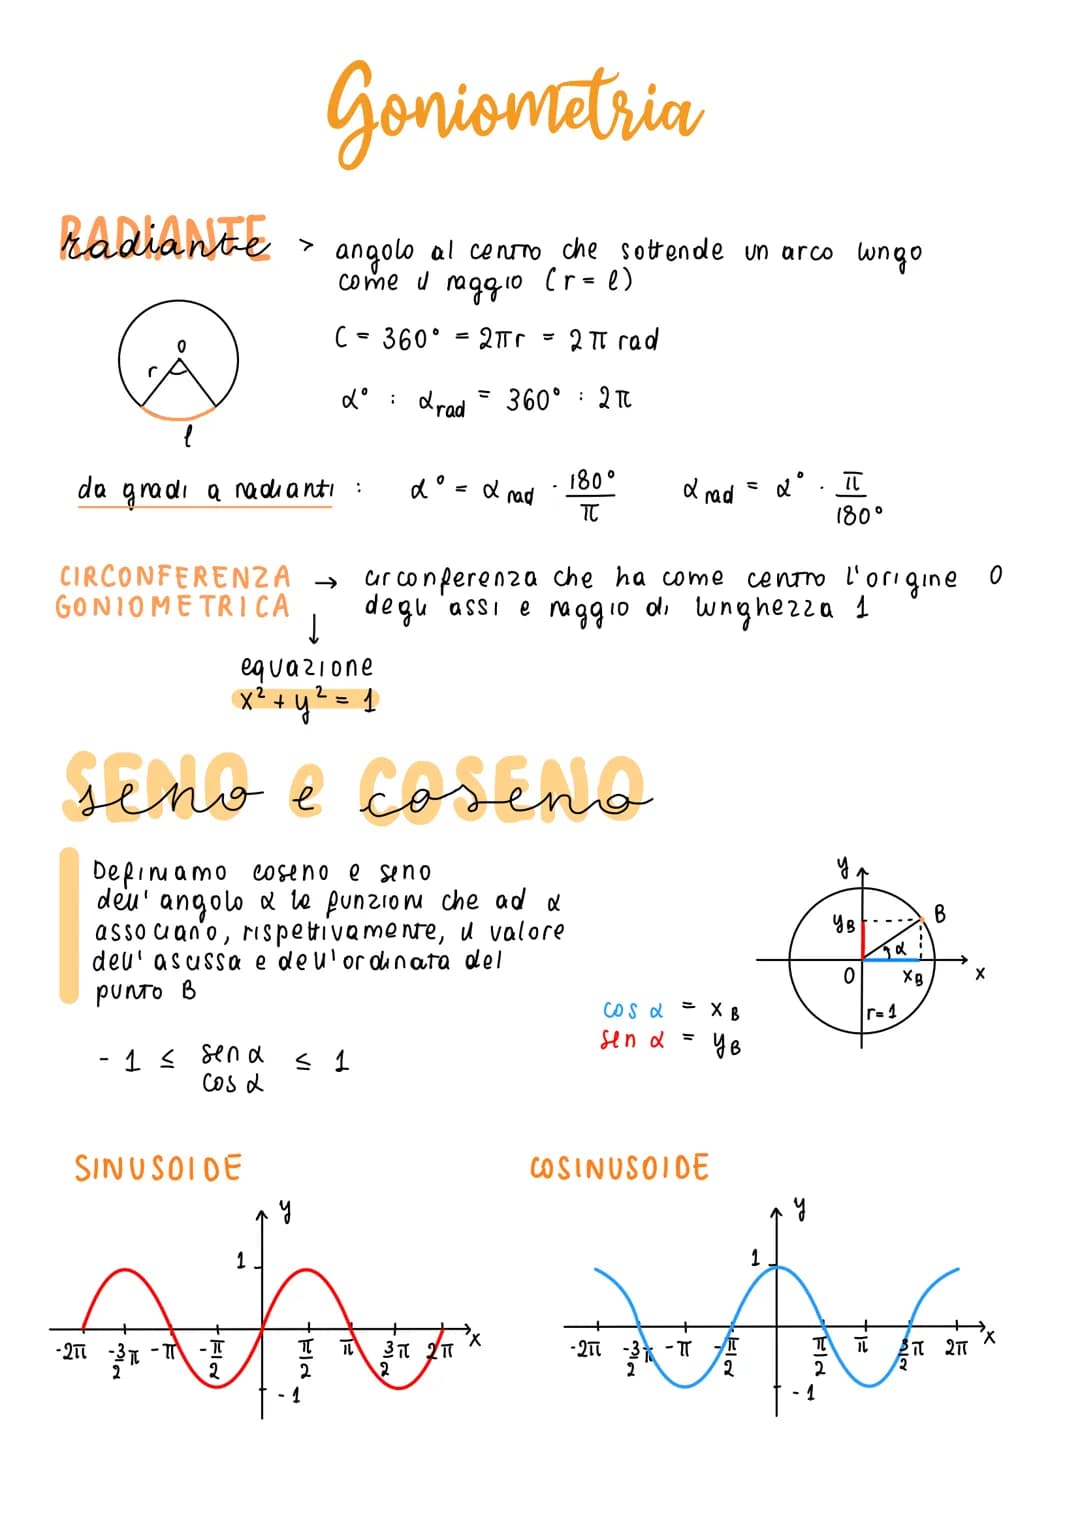 Goniometria
RADIANTE
radiante > angolo al centro che sottende un arco lungo
come il raggio (r = l)
C = 360° = 2πr = 2π rad
α° : α rad = 360° : 2π
o
r
l
da gradi a radianti : α° = α rad · 180°/π α rad = α° · π/180°
CIRCONFERENZA → circonferenza che ha come centro l'origine O
GONIOMETRICA degli assi e raggio di lunghezza 1
↓
equazione
x² + y² = 1
SENO e COSENO
seno e coseno
Definiamo coseno e seno
dell'angolo α le funzioni che ad α
associano, rispettivamente, il valore
dell'ascissa e dell'ordinata del
punto B
y
yB
B
α
O
xB
x
r=1
cos α = xB
sen α = yB
-1 ≤ sen α ≤ 1
cos α
SINUSOIDE
y
1
-2π -3/2π -π -π/2 π/2 π 3/2π 2π x
-1
COSINUSOIDE
y
1
-2π -3/2π -π -π/2 π/2 π 3/2π 2π x
-1